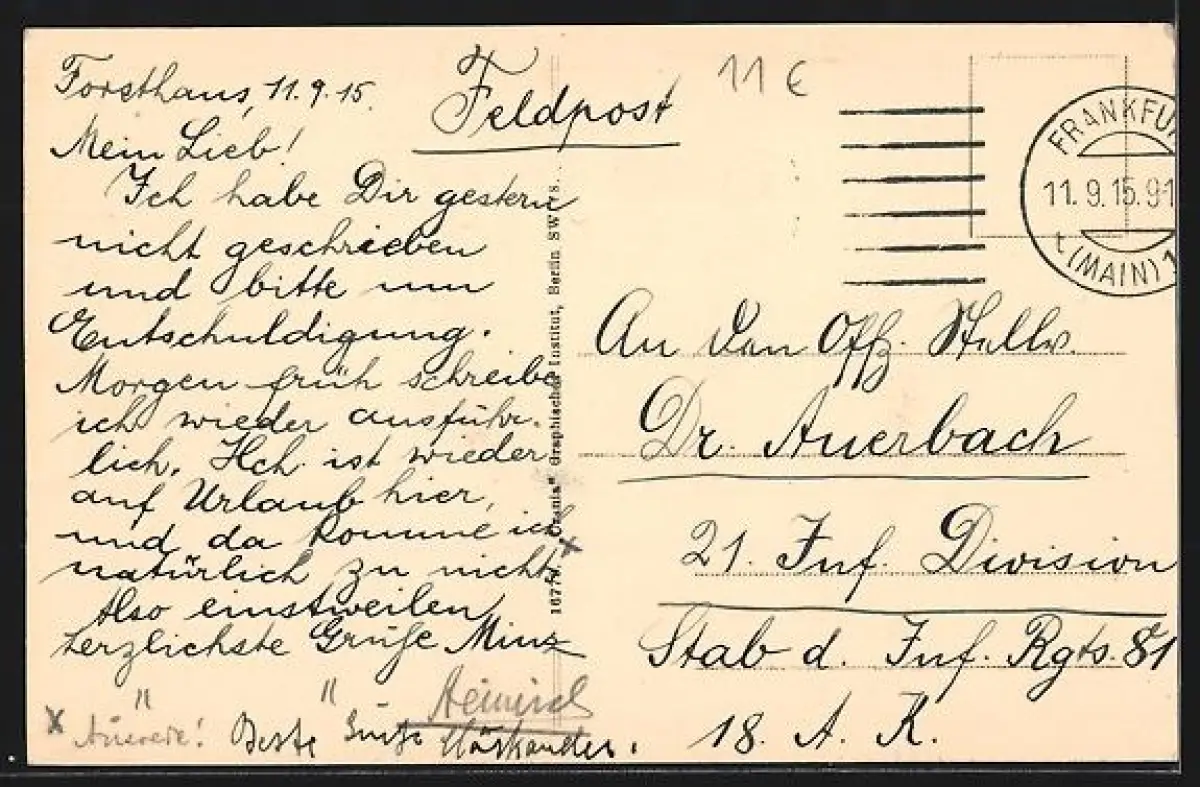 Forsthaus, 11.9.15.
Mein Lieb!
Ich habe Dir gestern
nicht geschrieben
und bitte um
Entschuldigung.
Morgen früh schreibe
ich wieder ausführ-
lich. Hch. ist wieder
auf Urlaub hier,
und da komme ich
natürlich zu nichts. x
Also einstweilen
herzlichste Grüße Minz
" " Heinrich
x Ausrede! Beste Grüße
Feldpost
11 €
FRANKFURT
11.9.15.9-1
(MAIN) 1
An den Offz. Stellv.
Dr. Auerbach
21. Inf. Division
Stab d. Inf. Rgts. 81
18. A. K.
Graphisches Institut, Berlin SW